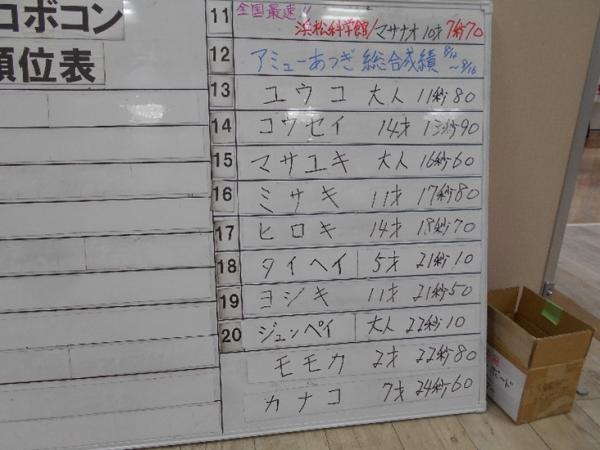 ロボコン
順位表
11 全国最速!!
浜松科学館/マサナオ 10才 7秒70
12 アミューあつぎ 総合成績 8/12〜8/16
13 ユウコ 大人 11秒80
14 コウセイ 14才 13秒90
15 マサユキ 大人 16秒60
16 ミサキ 11才 17秒80
17 ヒロキ 14才 18秒70
18 タイヘイ 5才 21秒10
19 ヨシキ 11才 21秒50
20 ジュンペイ 大人 22秒10
モモカ 2才 22秒80
カナコ 7才 24秒60